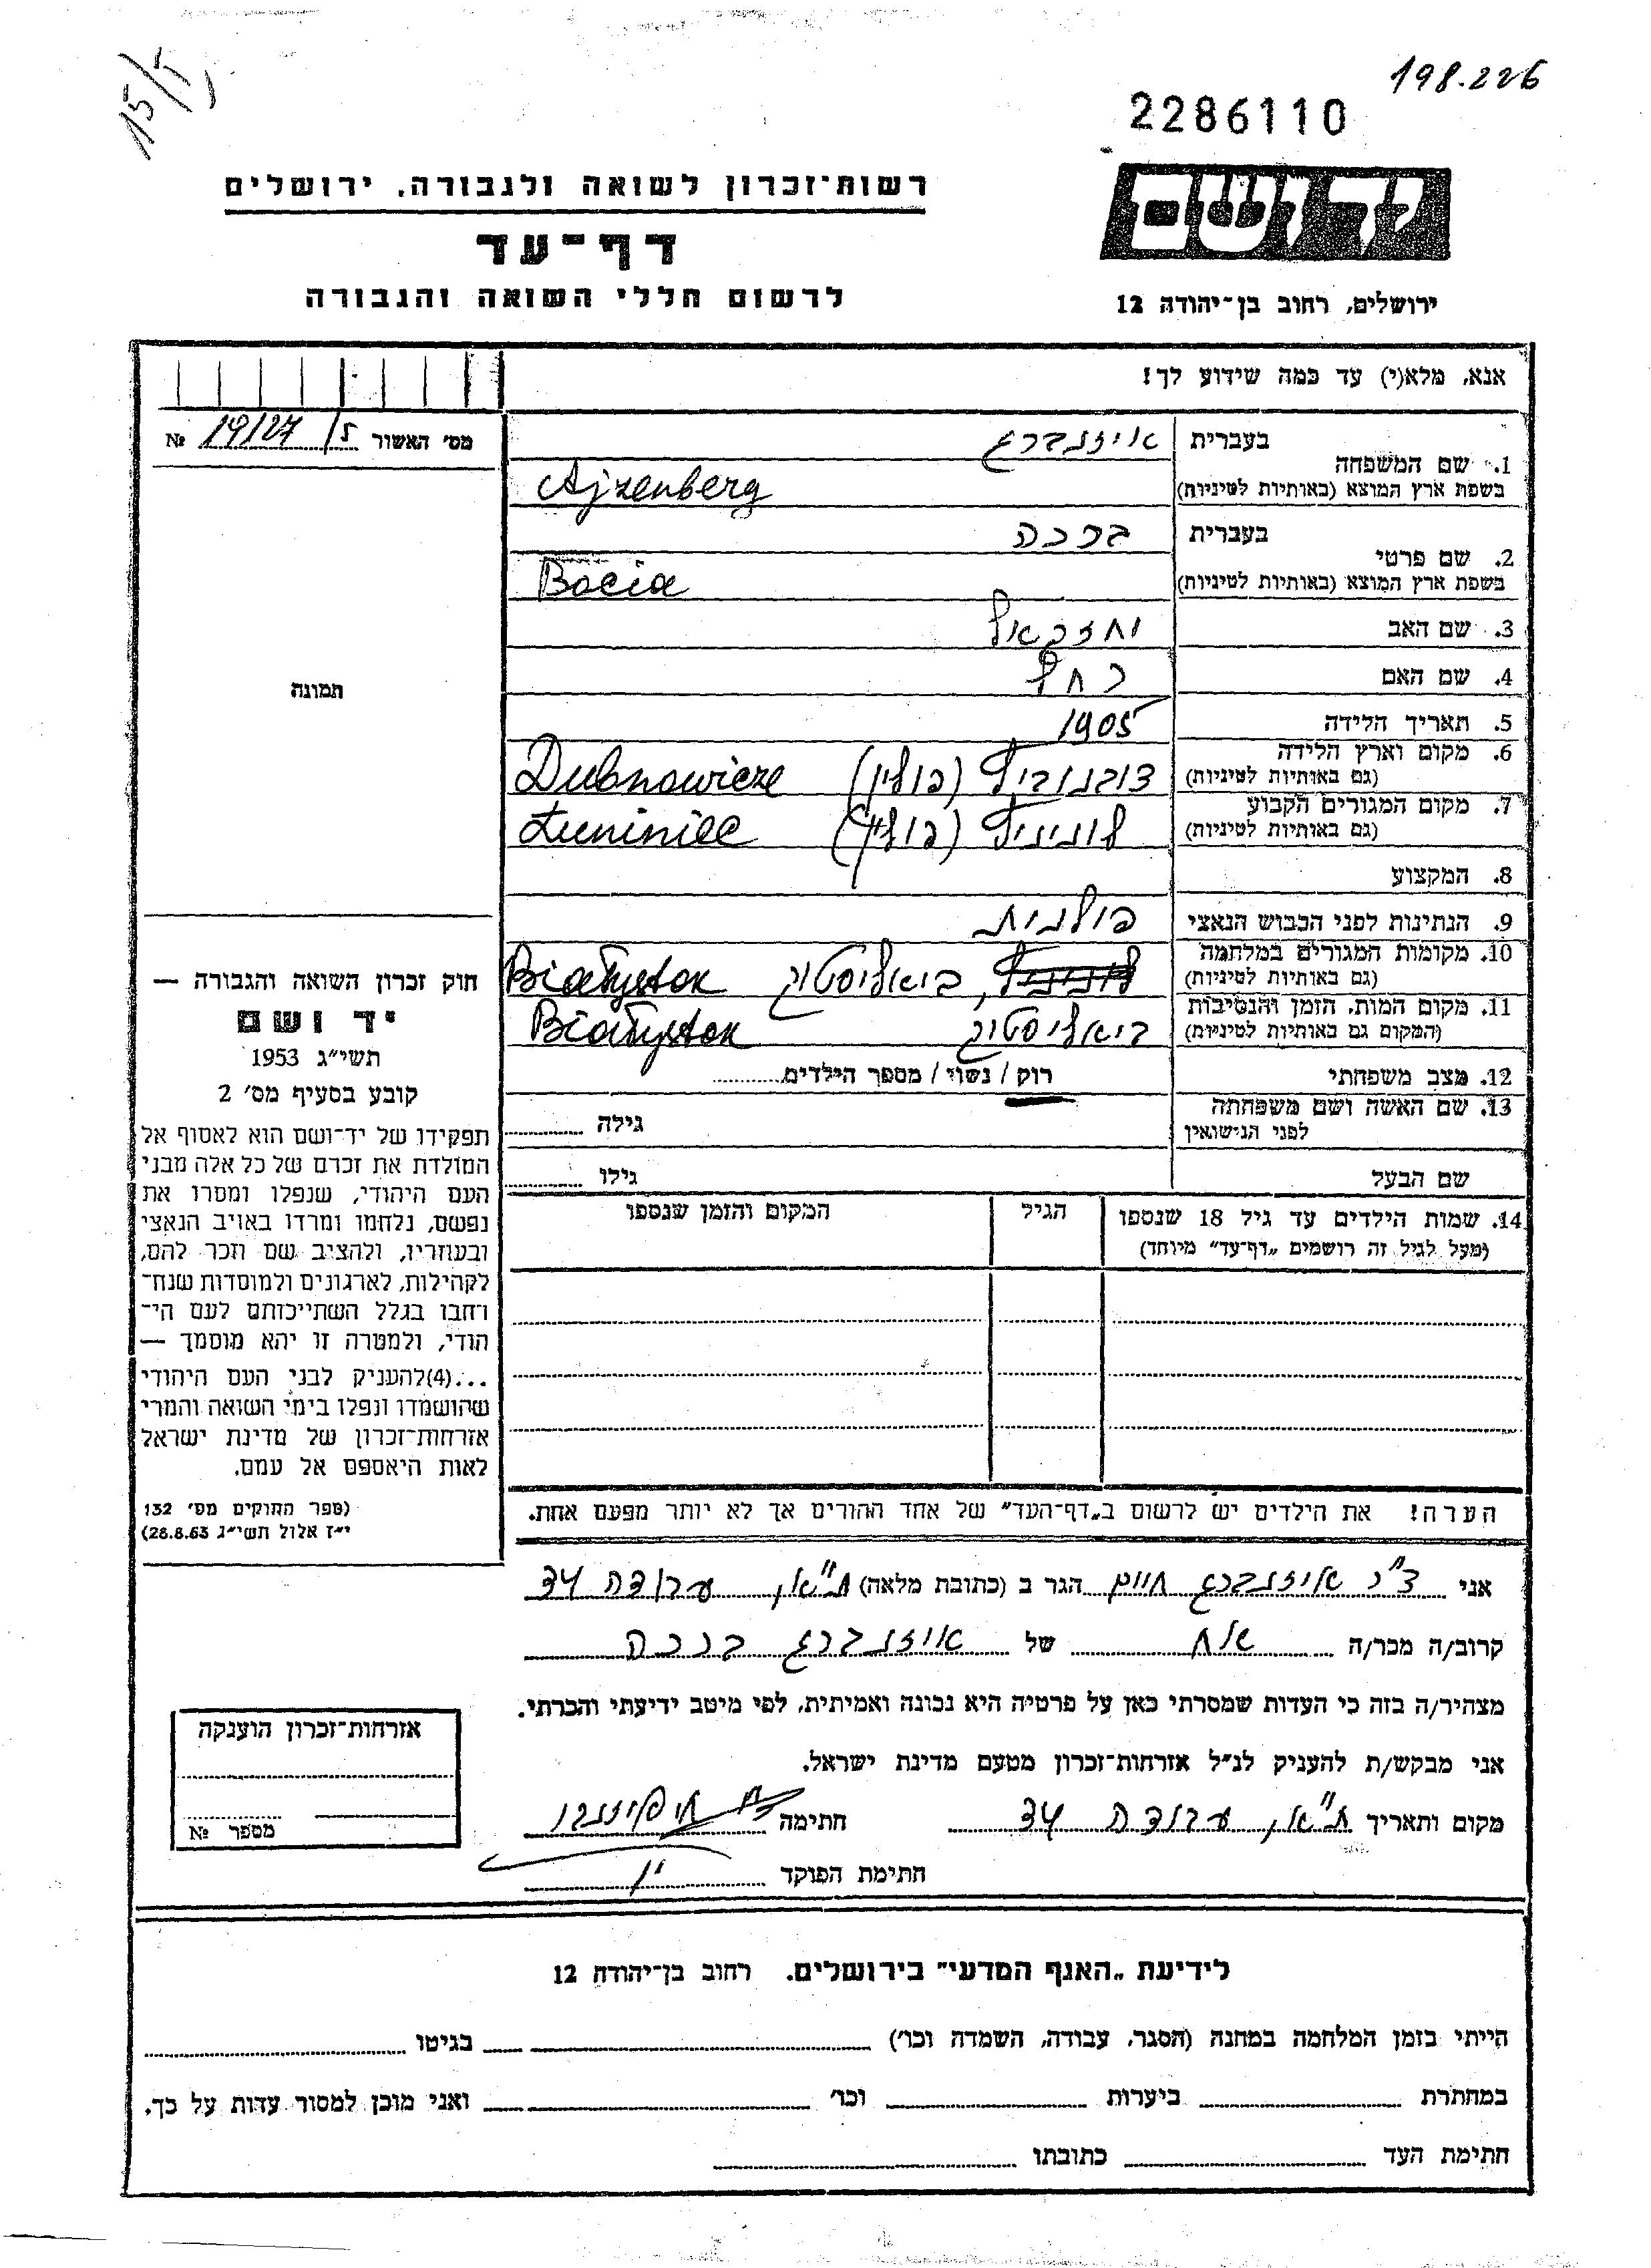 198.226
2286110
15/ל
יד ושם
רשות־זכרון לשואה ולגבורה, ירושלים
דף־עד
ירושלים, רחוב בן־יהודה 12
לרשום חללי השואה והגבורה
אנא, מלא(י) עד כמה שידוע לך!
מס׳ האשור 19/27 № 
1. שם המשפחה
בעברית אייזנברג
בשפת ארץ המוצא (באותיות לטיניות) Ajzenberg
2. שם פרטי
בעברית ברכה
בשפת ארץ המוצא (באותיות לטיניות) Bocia
3. שם האב יחזקאל
4. שם האם רחל
תמונה
5. תאריך הלידה 1905
6. מקום וארץ הלידה
(גם באותיות לטיניות) (פולין) Dubnowicze
7. מקום המגורים הקבוע
(גם באותיות לטיניות) (פולין) Łuniniec
8. המקצוע
9. הנתינות לפני הכבוש הנאצי פולנית
10. מקומות המגורים במלחמה
(גם באותיות לטיניות) ביאליסטוק Białystok
11. מקום המות, הזמן והנסיבות
(המקום גם באותיות לטיניות) ביאליסטוק Białystok
12. מצב משפחתי רוק / נשוי / מספר הילדים
13. שם האשה ושם משפחתה
לפני הנישואין גילה
שם הבעל גילו
14. שמות הילדים עד גיל 18 שנספו
(מעל לגיל זה רושמים „דף־עד״ מיוחד)
הגיל
המקום והזמן שנספו
חוק זכרון השואה והגבורה —
יד ושם
תשי״ג 1953
קובע בסעיף מס׳ 2
תפקידו של יד־ושם הוא לאסוף אל
המולדת את זכרם של כל אלה מבני
העם היהודי, שנפלו ומסרו את
נפשם, נלחמו ומרדו באויב הנאצי
ובעוזריו, ולהציב שם וזכר להם,
לקהילות, לארגונים ולמוסדות שנח־
רחבו בגלל השתייכותם לעם הי־
הודי, ולמטרה זו יהא מוסמך —
...(4)להעניק לבני העם היהודי
שהושמדו ונפלו בימי השואה והמרי
אזרחות־זכרון של מדינת ישראל
לאות היאספם אל עמם.
(ספר החוקים מס׳ 132
י״ז אלול תשי״ג 28.8.53)
הערה! את הילדים יש לרשום ב„דף־העד״ של אחד ההורים אך לא יותר מפעם אחת.
אני ד״ר אייזנברג חיים הגר ב (כתובת מלאה) ת״א, עבודה 34
קרוב/ה מכר/ה אח של אייזנברג ברכה
מצהיר/ה בזה כי העדות שמסרתי כאן על פרטיה היא נכונה ואמיתית, לפי מיטב ידיעתי והכרתי.
אני מבקש/ת להעניק לנ״ל אזרחות־זכרון מטעם מדינת ישראל.
מקום ותאריך ת״א, עבודה 34 חתימה
חתימת הפוקד
אזרחות־זכרון הוענקה
מספר №
לידיעת „האגף המדעי״ בירושלים, רחוב בן־יהודה 12
הייתי בזמן המלחמה במחנה (הסגר, עבודה, השמדה וכו׳) בגיטו
במחתרת ביערות וכו׳ ואני מוכן למסור עדות על כך.
חתימת העד כתובתו